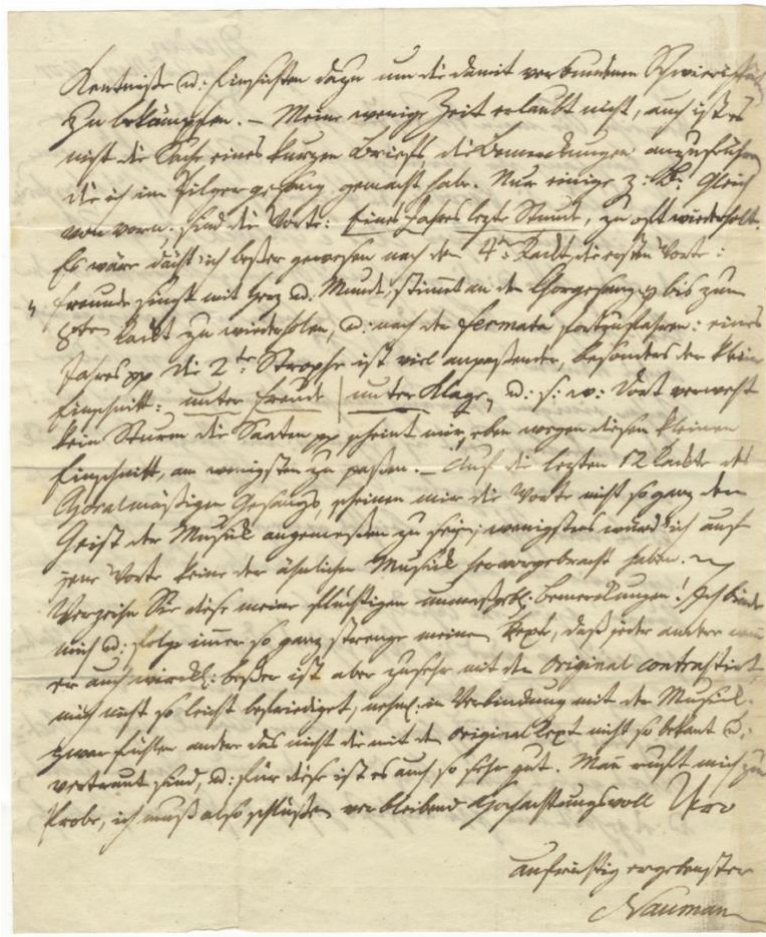 Kentniße u: Einsichten dazu um die damit verbundenen Schwierigkeit
zu bekämpfen. – Meine wenige Zeit erlaubt nicht, auch ist es
nicht die Sache eines kurzen Briefs, die Bemerkungen anzuführen
die ich im Pilgergesang gemacht habe. Nur einige z: B: Gleich
von vorn. sind die Worte: Eines Jahres lezte Stunde, zu oft wiederholt.
Es wäre dächt ich beßer gewesen nach dem 4t. Tackt die ersten Worte:
Freunde singt mit Herz u: Munde, stimmet an den Chorgesang bis zum
8ten Tackt zu wiederholen, u: nach der fermata fortzufahren: eines
Jahres pp die 2te Strophe ist viel anpaßender, besonders der kleine
Einschnitt: unter Freude | unter Klage, u: s: w: Dort verweht
kein Sturm die Saaten pp scheint mir, eben wegen diesen kleinen
Einschnitt, am wenigsten zu paßen. – Auf die lezten 12 Tackte des
Choralmäßigen Gesangs, scheinen mir die Worte nicht so ganz dem
Geist der Musick angemeßen zu sein; wenigstens würde ich auf
jene Worte keine der ähnlichen Musick hervorgebracht haben.
Verzeihn Sie diese meine flüchtigen Bemerkungen! Ich binde
mich u: folge immer so ganz strenge meinem Text, daß jeder andere wenn
er auch wirckl: beßer ist aber zu sehr mit dem Original contrastirt
mich nicht so leicht befriediget, nehml: in Verbindung mit der Musick.
zwar fühlen andere das nicht die mit dem original Text nicht so bekant u:
vertraut sind, u: für diese ist es auch so sehr gut. Man ruft mich zur
Probe, ich muß also schlüßen verbleibend Hochachtungsvoll Ihro
aufrichtig ergebenster
Nauman